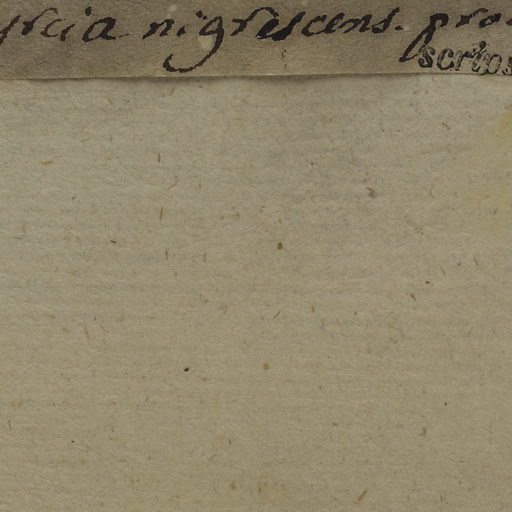 yrcia nigrescens. pro.
scrips